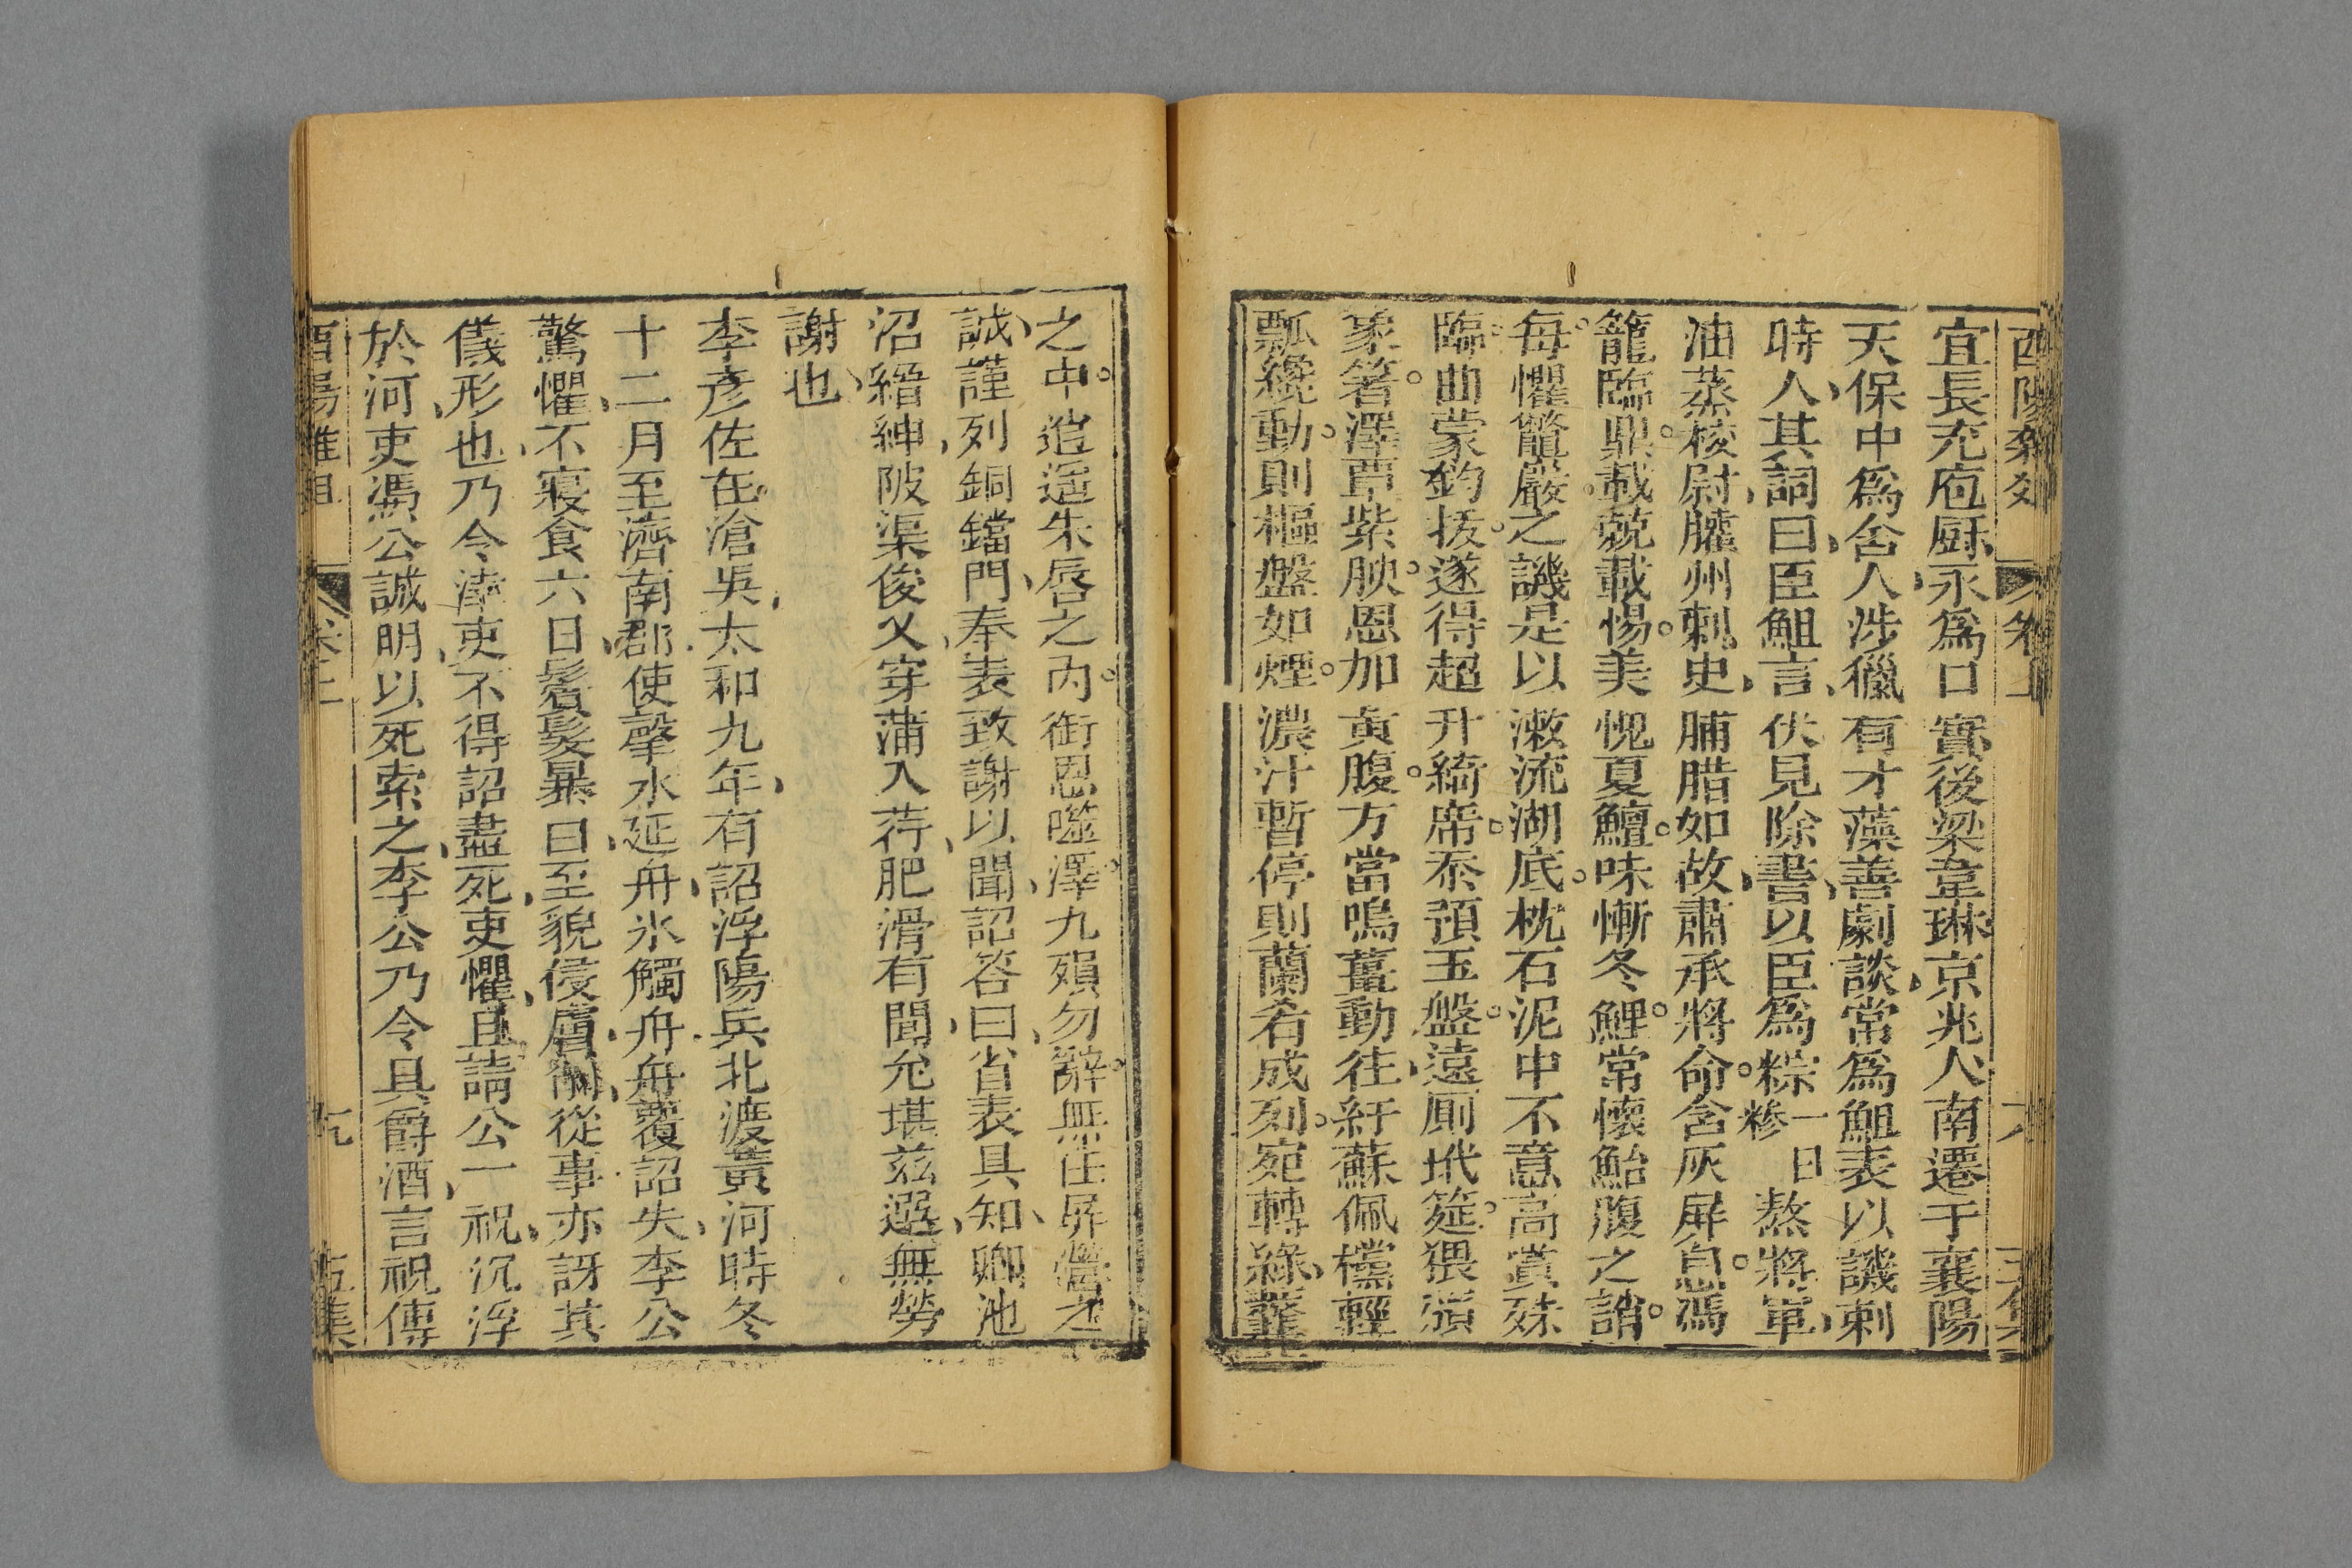 宜長充庖厨永爲口實後梁韋琳京兆人南遷于襄陽
天保中爲舍人涉獵有才藻善劇談常爲䱉表以譏刺
時人其詞曰臣䱉言伏見除書以臣爲粽一日糝熬將軍
油蒸校尉臛州刺史脯腊如故肅承將命含灰屏息馮
籠臨鼎載兢載惕美愧夏鱣味慚冬鯉常懷鮐腹之誚
每懼鼈巖之譏是以漱流湖底枕石泥中不意高賞殊
臨曲蒙鈞拔遂得超升綺席忝預玉盤遠厠玳筵猥頒
象箸澤覃紫腴恩加黃腹方當鳴薑動往紆蘇佩欓輕
瓢纔動則樞盤如煙濃汁暫停則蘭肴成列宛轉綠虀
之中逍遥朱唇之内銜恩噬澤九殞勿辭無任屏營之
誠謹列銅鐺門奉表致謝以聞詔答曰省表具知卿池
沼縉紳陂渠俊乂穿蒲入荇肥滑有聞允堪兹選無勞
謝也
李彦佐在滄吳太和九年有詔浮陽兵北渡黃河時冬
十二月至濟南郡使擊氷延舟氷觸舟舟覆詔失李公
驚懼不寢食六日鬢髮暴曰至貌侵膚削從事亦訝其
儀形也乃令津吏不得詔盡死吏懼且請公一祝沉浮
於河吏馮公誠明以死索之李公乃令具爵酒言祝傳
酉陽雜俎 卷上 九 五集